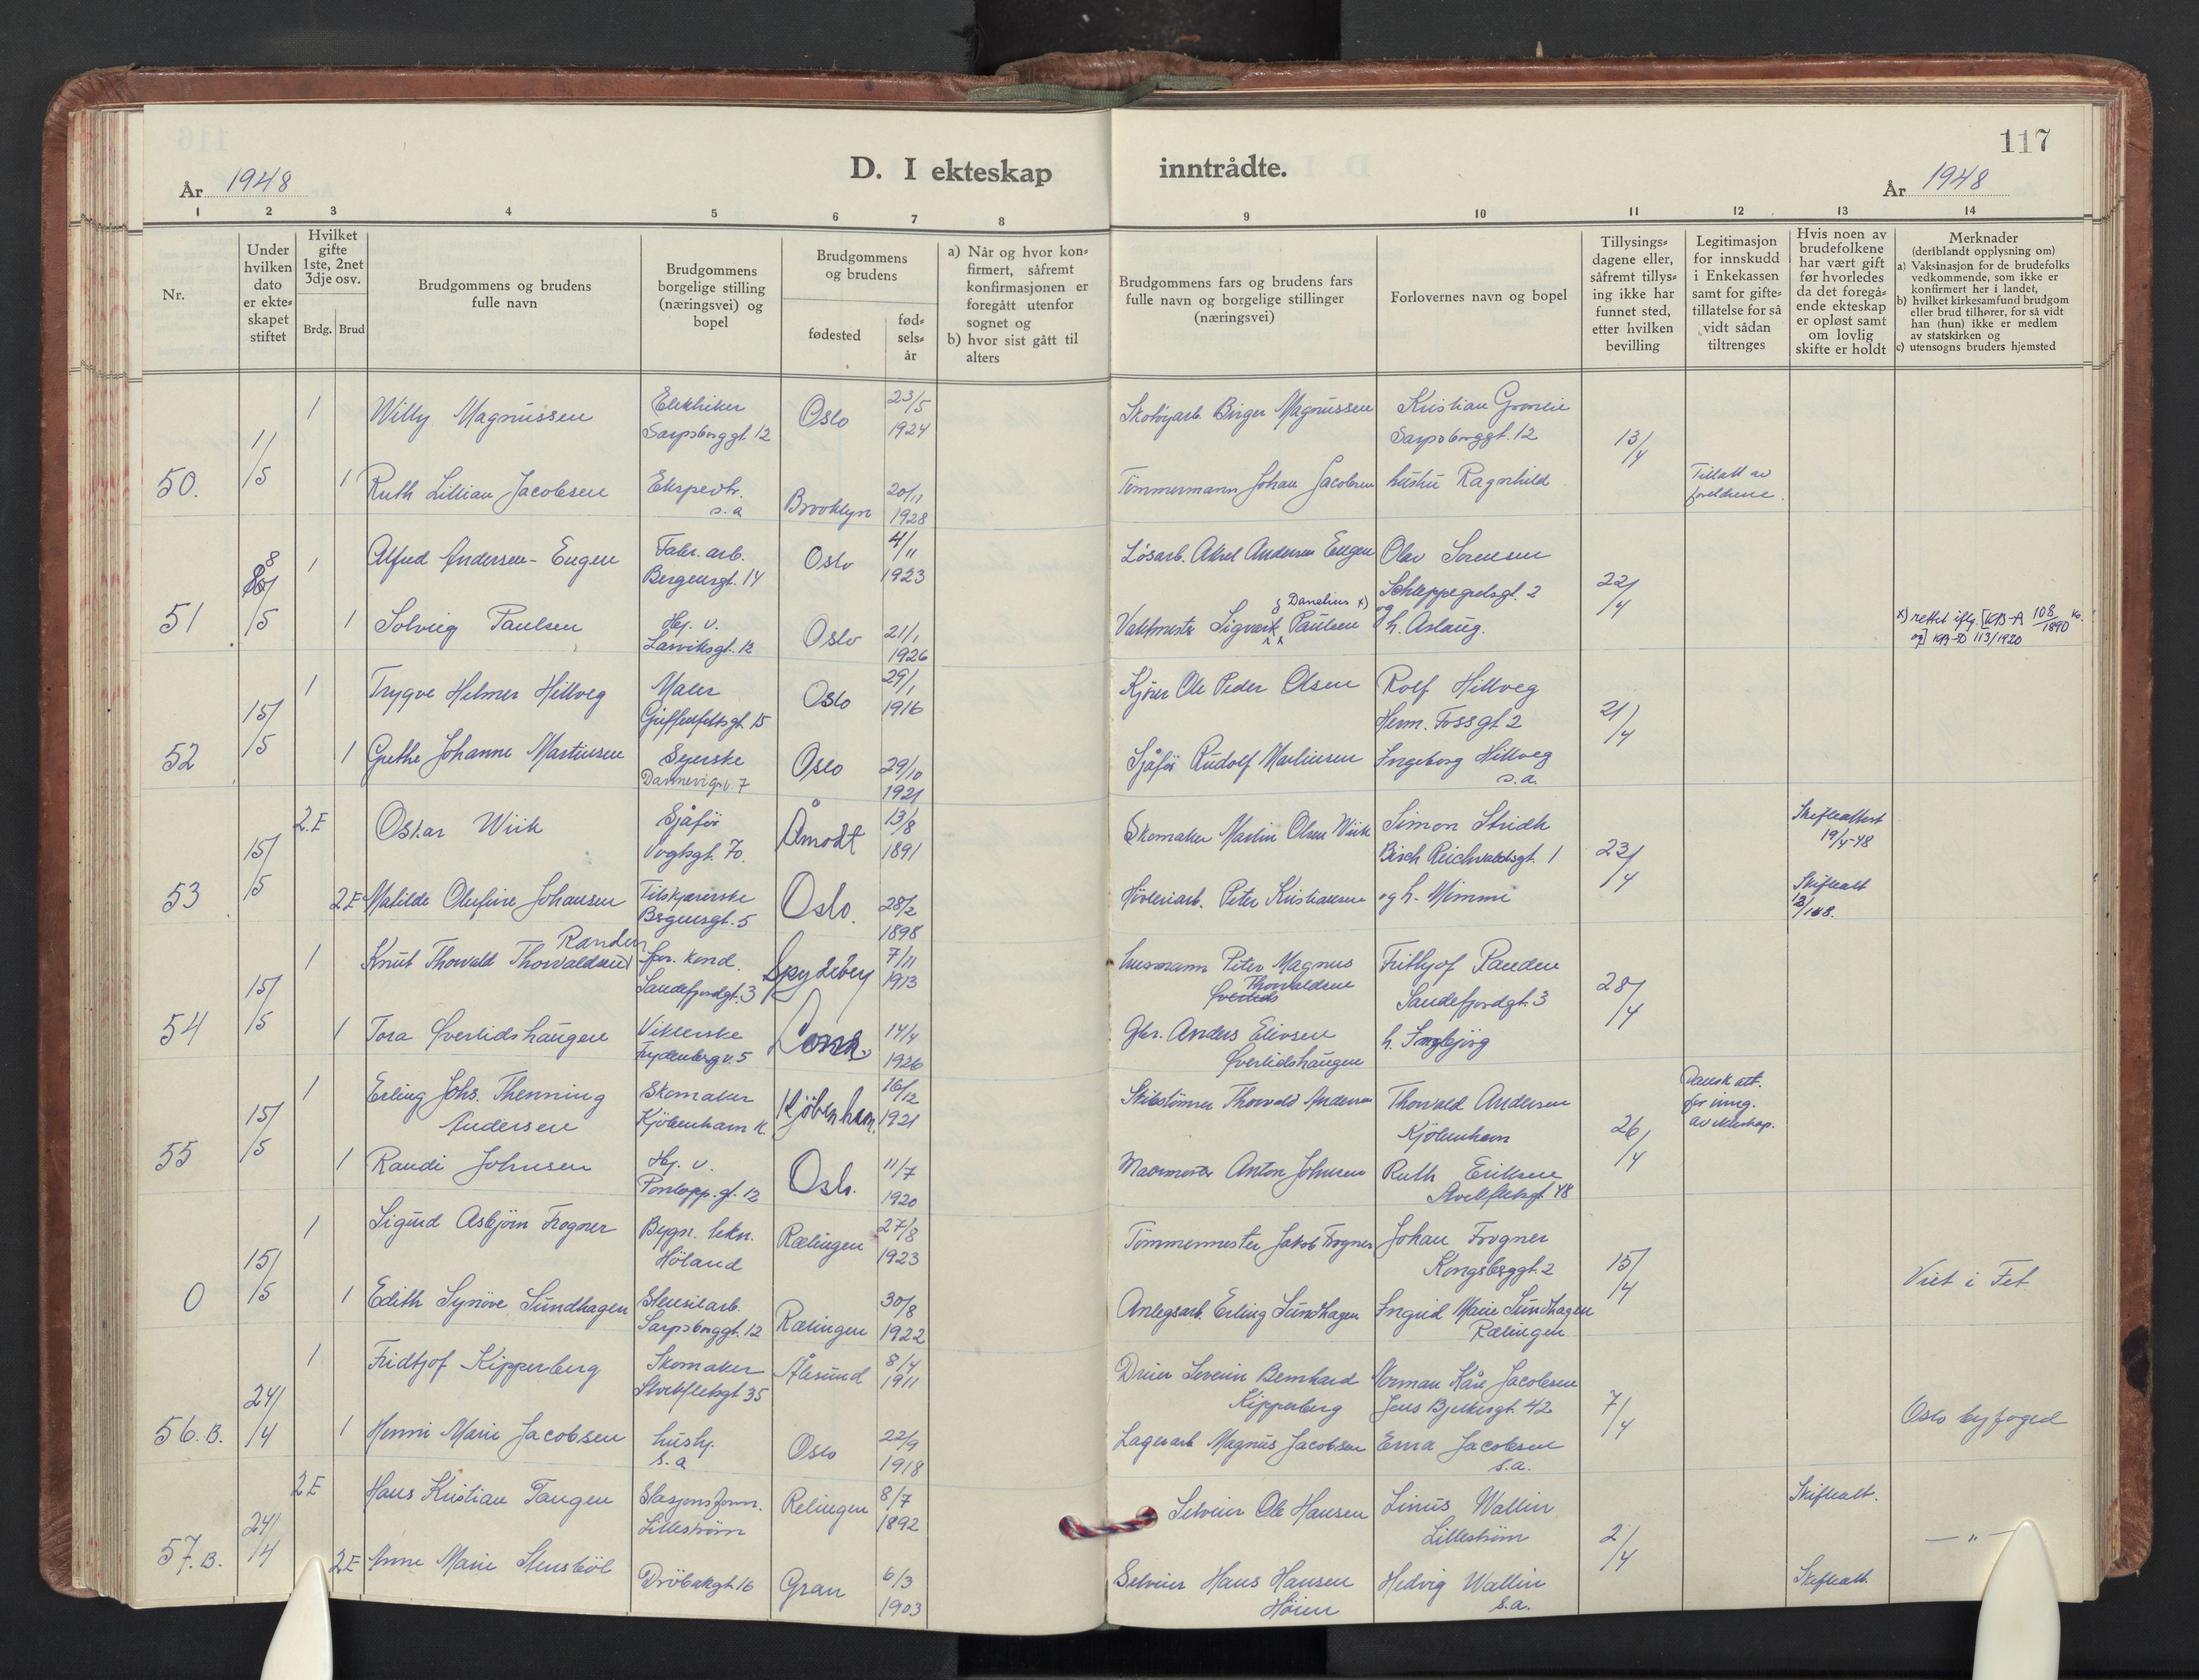 117
År 1948
D. I ekteskap inntrådte.
År 1948
1 2 3 4 5 6 7 8 9 10 11 12 13 14
Nr.
Under
hvilken
dato
er ekte=
skapet
stiftet
Hvilket
gifte
1ste, 2net
3dje osv.
Brdg. Brud
Brudgommens og brudens
fulle navn
Brudgommens
borgelige stilling
(næringsvei) og
bopel
Brudgommens
og brudens
fødested
fød=
sels=
år
a) Når og hvor kon=
firmert, såfremt
konfirmasjonen er
foregått utenfor
sognet og
b) hvor sist gått til
alters
Brudgommens fars og brudens fars
fulle navn og borgelige stillinger
(næringsvei)
Forlovernes navn og bopel
Tillysings=
dagene eller,
såfremt tillys=
ing ikke har
funnet sted,
etter hvilken
bevilling
Legitimasjon
for innskudd
i Enkekassen
samt for gifte=
tillatelse for så
vidt sådan
tiltrenges
Hvis noen av
brudefolkene
har vært gift
før hvorledes
da det foregå=
ende ekteskap
er opløst samt
om lovlig
skifte er holdt
Merknader
(deriblandt opplysning om)
a) Vaksinasjon for de brudefolks
vedkommende, som ikke er
konfirmert her i landet,
b) hvilket kirkesamfund brudgom
eller brud tilhører, for så vidt
han (hun) ikke er medlem
av statskirken og
c) utensogns bruders hjemsted
50. 1/5
1 Willy Magnussen Elektriker Oslo 23/5 Skotøyarb. Birger Magnussen Kristian Gronlie
Sarpsborggt. 12 1924 Sarpsborggt. 12 13/4
1 Ruth Lillian Jacobsen Ekspedtr. Brooklyn 20/11 Tömmermann Johan Jacobsen hustru Ragnhild Tillatt av
s.a 1928 foreldrene.
51 8/5
1 Alfred Andersen-Engen Fabr. arb. Oslo 4/11 Løsarb. Aksel Andersen Engen Olav Sorensen
Bergensgt. 14 1923 Schleppegrelsgt. 2 22/4
1 Solveig Paulsen Hj. v. Oslo 21/1 Vaktmester Sigvart Danelius x) Paulsen og h. Aslaug. x) rettet iflg. [KB-A 108/1890
Larviksgt. 12 1926 og] KB-D 113/1920
52 15/5
1 Trygve Helmer Hillveg Maler Oslo 29/1 Kjører Ole Peder Olsen Rolf Hillveg
Griffenfeltsgt. 15 1916 Herm. Fossgt 2 21/4
1 Grethe Johanne Martinsen Syerske Oslo 29/10 Sjåfør Rudolf Martinsen Ingeborg Hillveg
Dannevigsv. 7 1921 s.a.
53 15/5
2.E Oskar Wiik Sjåfør Åmodt 13/8 Skomaker Martin Olsen Wiik Simon Stridh Skifteattest
Vogtsgt. 70. 1891 Bisch Reichwaldsgt. 1 23/4 19/4-48
2E Matilde Olufine Johansen Tilskjærerske Oslo. 28/2 Høvleriarb. Peter Kristiansen og h. Mimmi Skifteatt
Bergensgt. 5 1898
54 15/5
1 Knut Thorvald Thorvaldsen Randen for. kond. Spydeberg 7/11 husmann Peter Magnus Thorvaldsen Frithjof Randen
Sandefjordgt. 3 1913 Sandefjordgt. 3 28/4
1 Tora Øverlidshaugen Viklerske Lom. 14/4 Gbr. Anders Elivsen h. Ingbjørg
Frydenbergv. 5 1926 Øverlidshaugen
55 15/5
1 Erling Johs. Thenning Skomaker Kjøbenhavn. 16/12 Skibstømrer Thorvald Andersen Thorvald Andersen Dansk att.
Andersen Kjøbenhavn K. 1921 Kjøbenhavn 26/4 for inng.
av ekteskap.
1 Randi Johnsen Hj. v. Oslo. 11/7 Anton Johnsen Ruth Eriksen
Pontopp. gt. 12 1920 Stockfletsgt 48
0 15/5
1 Sigurd Asbjørn Frogner Bygn. tekn. Rælingen 27/8 Tømmermester Jakob Frogner Johan Frogner
Høland 1923 Kongsberggt. 2 15/4 Viet i Fet
1 Edith Synøve Sundhagen Stensilarb. Rælingen 30/8 Anlegsarb. Erling Sundhagen Ingrid Marie Sundhagen
Sarpsborggt. 12 1922 Rælingen
56.B. 24/4
1 Fridtjof Kipperberg Skomaker Ålesund 8/4 Severin Bernhard Norman Kåre Jacobsen
Stockfletsgt 35 1911 Kipperberg Jens Bjelkesgt. 42 7/4 Oslo byfoged
1 Henni Marie Jacobsen hushj. Oslo 22/9 Lagerarb Magnus Jacobsen Erna Jacobsen
s.a 1918 s.a.
57.B. 24/4
2E Hans Kristian Tangen Stasjonsform. Relingen 8/7 Selveier Ole Hansen Linus Wallin Skifteatt.
Lillestrøm 1892 Lillestrøm 2/4 — " —
2E Anne Marie Stensbøl Drøbakgt. 16 Gran 6/3 Selveier Hans Hansen Hedvig Wallin Skifteatt.
1903 Høien s.a.